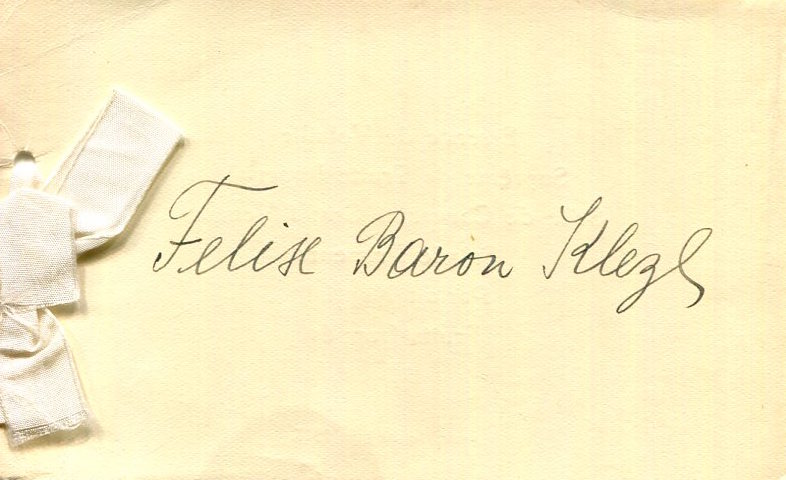 Felix Baron Klezl